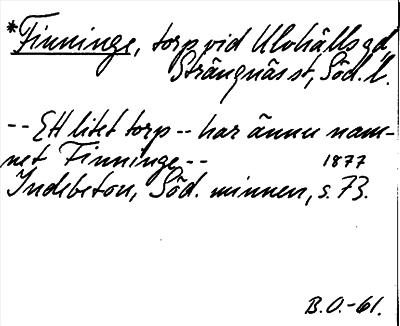 *Finninge, torp vid Ulvhälls gd
Strängnäs st, Söd. l.
-- Ett litet torp -- har ännu nam-
net Finninge -- 1877
Indebetou, Söd. minnen, s. 73.
B.O.-61.